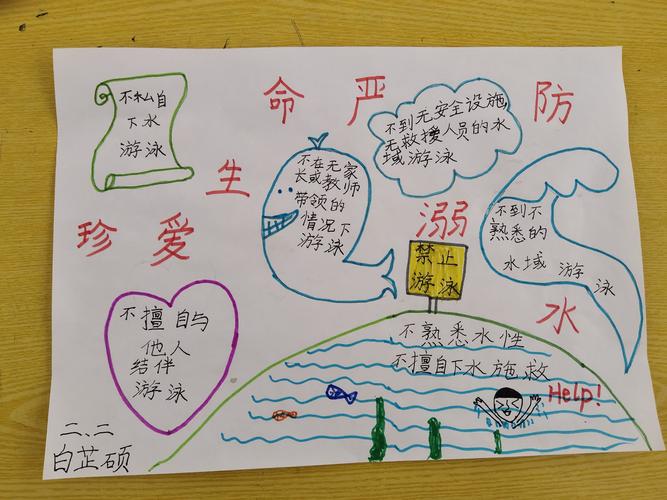 珍爱生命严防溺水
不私自
下水
游泳
不在无家
长或教师
带领的
情况下
游泳
不到无安全设施,
无救援人员的水
域游泳
不到不
熟悉的
水域游泳
禁止
游泳
不擅自与
他人
结伴
游泳
不熟悉水性
不擅自下水施救
Help!
二、二
白芷硕